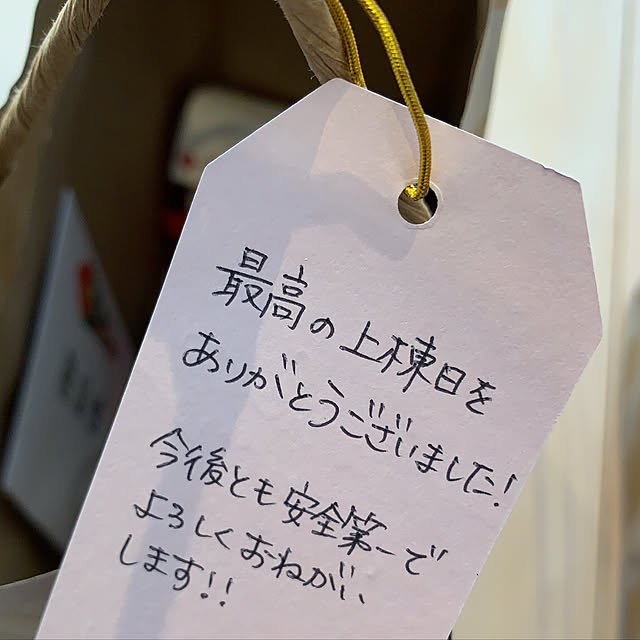 最高の上棟日を
ありがとうございました!
今後とも安全第一で
よろしくおねがい
します!!